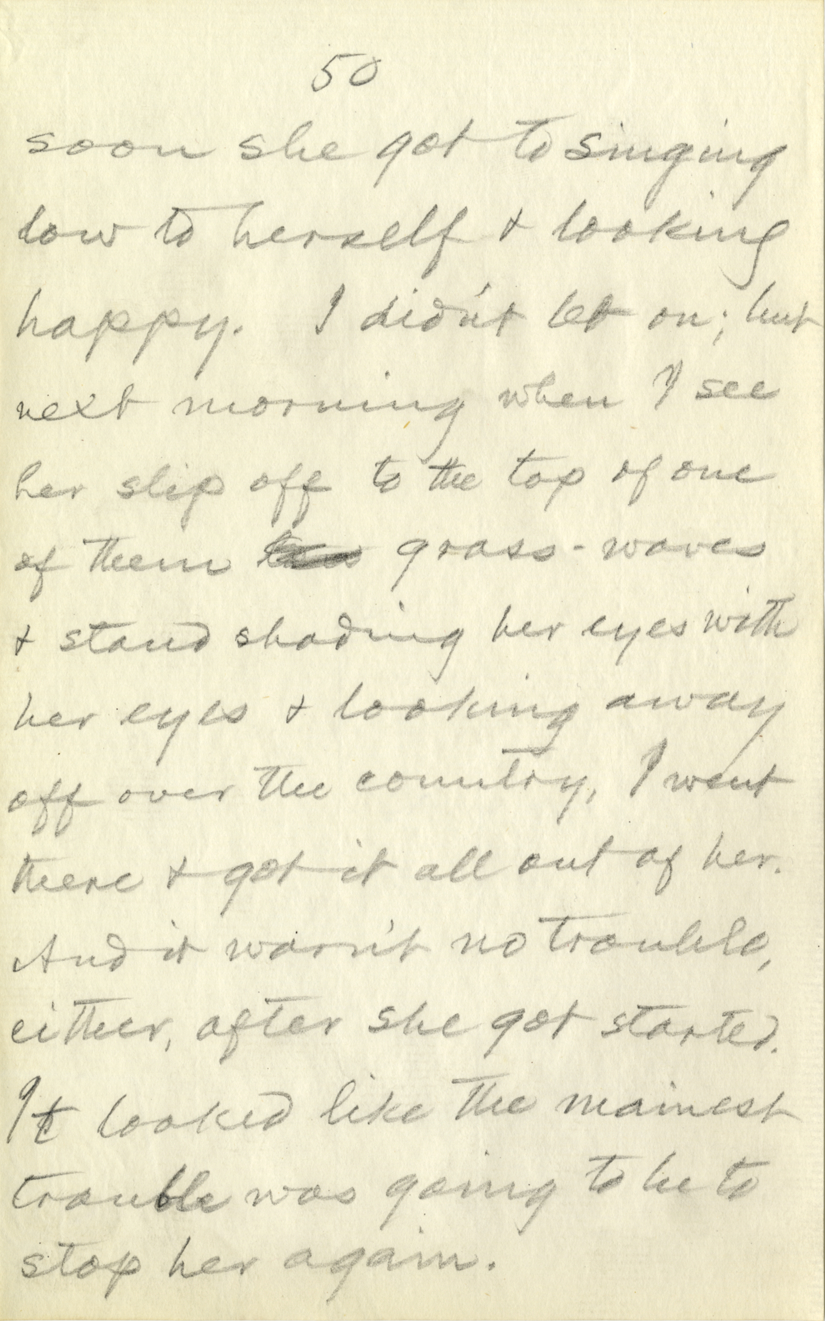 50
soon she got to singing
low to herself & looking
happy. I didn't let on; but
next morning when I see
her slip off to the top of one
of them grass-waves
& stand shading her eyes with
her eyes & looking away
off over the country, I went
there & got it all out of her.
And it warn't no trouble,
either, after she got started.
It looked like the mainest
trouble was going to be to
stop her again.